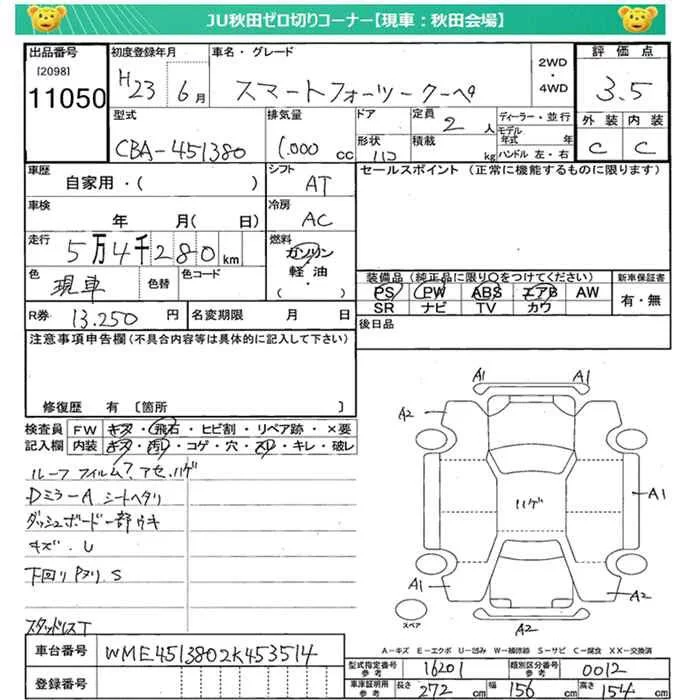 JU秋田ゼロ切りコーナー【現車：秋田会場】
出品番号
[2098]
11050
初度登録年月
H23 6月
車名・グレード
スマートフォーツークーペ
2WD
・
4WD
評価点
3.5
外装 内装
C C
型式
CBA-451380
排気量
1.000 cc
ドア
形状
ハコ
定員 2 人
積載 kg
ディーラー・並行
モデル
年式 年
ハンドル 左・右
車歴
自家用・( )
シフト
AT
セールスポイント（正常に機能するものに限ります）
車検
年 月( 日)
冷房
AC
走行
5万4千280km
燃料
ガソリン
軽油
・
( )
色
現車
色替
色コード
装備品（純正品に限り○をつけてください）
PS PW ABS エアB AW
SR ナビ TV カワ
新車保証書
有・無
R券 13.250 円
名変期限 月 日
後日品
注意事項申告欄（不具合内容等は具体的に記入して下さい）
修復歴 有〔箇所 〕
検査員
記入欄
FW キズ・飛石・ヒビ割・リペア跡・×要
内装 キズ・汚レ・コゲ・穴・スレ・キレ・破レ
ルーフ フィルム？アセ、ハゲ
Dミラー A シートヘタリ
ダッシュボード一部ウキ
キズ．U
下回り Pタリ．S
スタッドレスT
A1 A1
A2
ハゲ
A1
A1
A2
A2
スペア
A－キズ E－エクボ U－凹み W－補修跡 S－サビ C－腐食 XX－交換済
車台番号
WME4513802K453514
登録番号
型式指定番号
参考
16201
類別区分番号
参考
0012
車庫証明用
参考
長さ 272 cm
幅 156 cm
高さ 154 cm